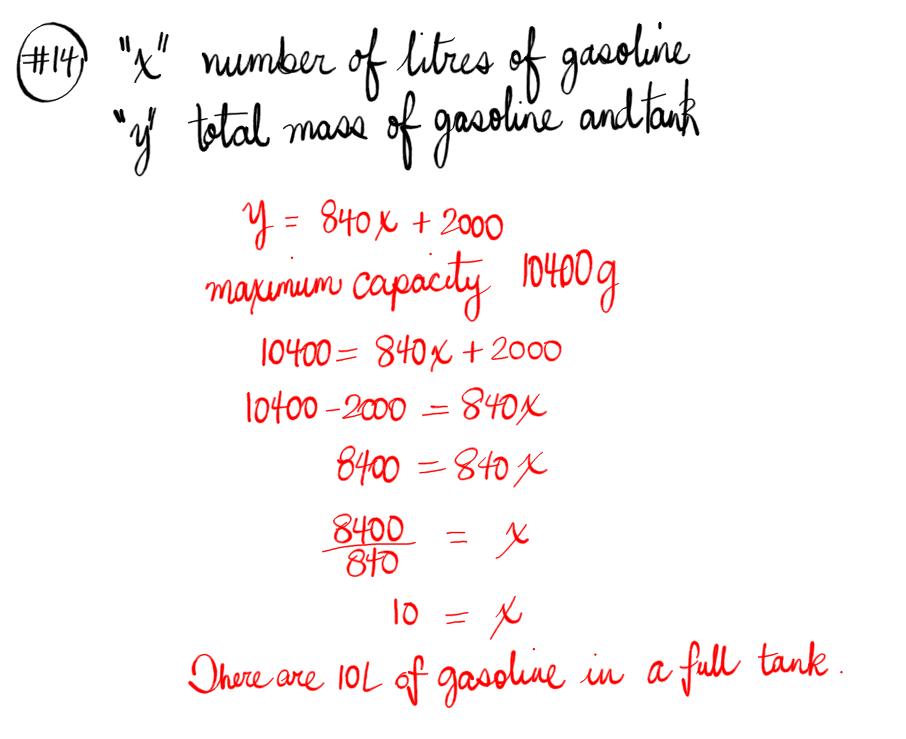 #14 "x" number of litres of gasoline
"y" total mass of gasoline and tank
y = 840x + 2000
maximum capacity 10400g
10400 = 840x + 2000
10400 - 2000 = 840x
8400 = 840x
8400/840 = x
10 = x
There are 10L of gasoline in a full tank.